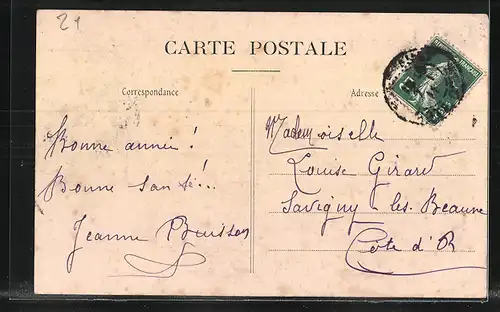 21
CARTE POSTALE
Correspondance
Adresse
Bonne année!
Bonne santé!..
Jeanne Buisson
Mademoiselle
Louise Girard
Savigny-les-Beaune
Côte d'Or